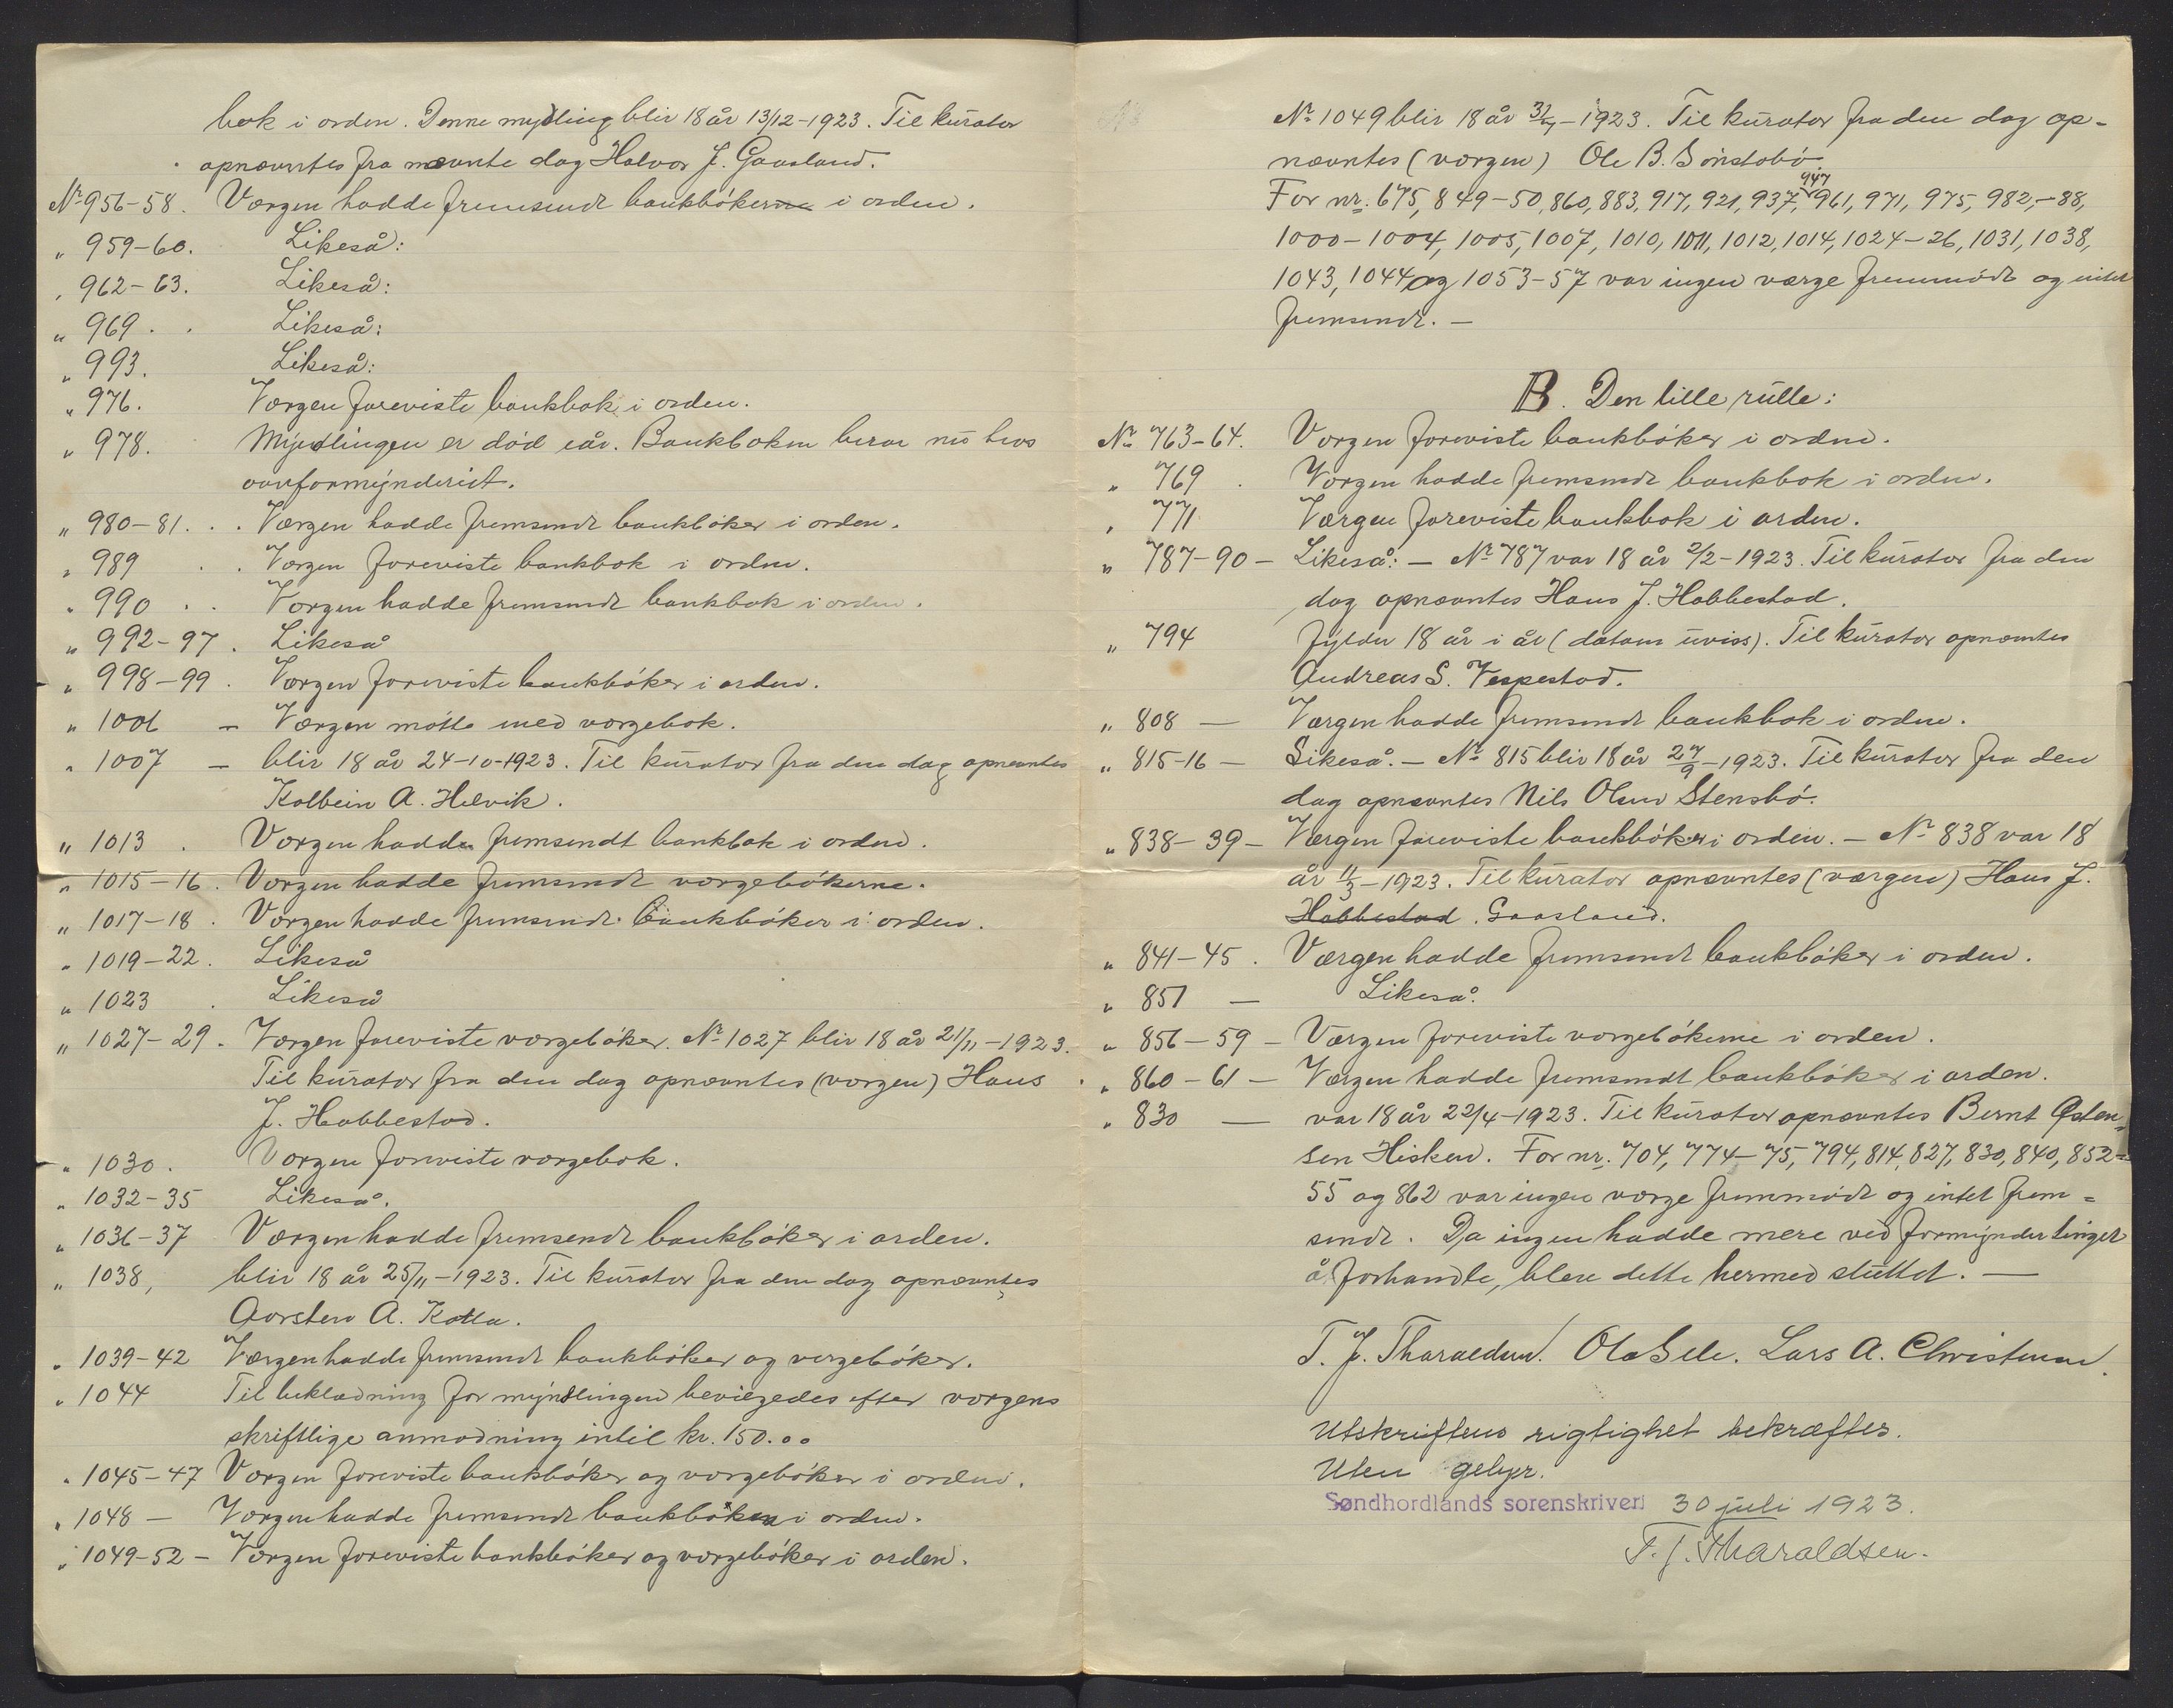 bok i orden. Denne mydling blir 18 år 13/12-1923. Til kurator
opnævntes fra nævnte dag Halvor J. Gaasland.
No 956-58. Værgen hadde fremsendt bankbøkerne i orden.
" 959-60. Likeså:
" 962-63. Likeså:
" 969. . Likeså:
" 993. Likeså:
" 976. Værgen foreviste bankbok i orden.
" 978. Myndlingen er død iår. Bankboken beror nu hos
overformynderiet.
" 980-81. . . Værgen hadde fremsendt bankbøker i orden.
" 989 . . Værgen foreviste bankbok i orden.
" 990 . . Værgen hadde fremsendt bankbok i orden.
" 992-97 . Likeså
" 998-99 . Værgen foreviste bankbøker i orden.
" 1006 - Værgen møtte med værgebok.
" 1007 - blir 18 år 24-10-1923. Til kurator fra den dag opnævntes
Kolbein A. Helvik.
" 1013 . Værgen hadde fremsendt bankbok i orden.
" 1015-16. Værgen hadde fremsendt værgebøkerne.
" 1017-18. Værgen hadde fremsendt bankbøker i orden.
" 1019-22. Likeså
" 1023 . Likeså
" 1027-29. Værgen foreviste værgebøker. No 1027 blir 18 år 21/11-1923.
Til kurator fra den dag opnævntes (værgen) Hans
J. Habbestad.
" 1030. Værgen foreviste værgebok.
" 1032-35 Likeså.
" 1036-37 Værgen hadde fremsendt bankbøker i orden.
" 1038, blir 18 år 25/11-1923. Til kurator fra den dag opnævntes
Torsten A. Katla.
" 1039-42 Værgen hadde fremsendt bankbøker og vergebøker.
" 1044 Til beklædning for myndlingen bevilgedes efter værgens
skriftlige anmodning intil kr. 150.00
" 1045-47 Værgen foreviste bankbøker og værgebøker i orden.
" 1048 - Værgen hadde fremsendt bankbøker i orden.
" 1049-52 - Værgen foreviste bankbøker og værgebøker i orden.
No 1049 blir 18 år -1923. Til kurator fra den dag op-
nævntes (værgen) Ole B. Sønstabø.
947
For nr. 675, 849-50, 860, 883, 917, 921, 937, 961, 971, 975, 982,-88,
1000-1004, 1005, 1007, 1010, 1011, 1012, 1014, 1024-26, 1031, 1038,
1043, 1044 og 1053-57 var ingen værge fremmødt og intet
fremsendt. -
B. Den lille rulle:
No 763-64. Værgen foreviste bankbøker i orden.
" 769 . Værgen hadde fremsendt bankbok i orden.
" 771 Værgen foreviste bankbok i orden.
" 787-90 - Likeså: - No 787 var 18 år 2/2-1923. Til kurator fra den
dag opnævntes Hans J. Habbestad.
" 794 fylder 18 år i år (datum uviss). Til kurator opnævntes
Andreas S. Vespestad.
" 808 - Værgen hadde fremsendt bankbok i orden.
" 815-16 - Likeså. - No 815 blir 18 år 27/9-1923. Til kurator fra den
dag opnævntes Nils Olsen Stensbø.
" 838-39 - Værgen foreviste bankbøker i orden. - No 838 var 18
år 11/3-1923. Til kurator opnævntes (værgen) Hans J.
Habbestad. Gaasland.
" 841-45 . Værgen hadde fremsendt bankbøker i orden.
" 851 - Likeså.
" 856-59 - Værgen foreviste værgebøkerne i orden.
" 860-61 - Værgen hadde fremsendt bankbøker i orden.
" 830 - var 18 år 22/4-1923. Til kurator opnævntes Bernt Østen-
sen Hisken. For nr. 704, 774-75, 794, 814, 827, 830, 840, 852-
55 og 862 var ingen værge fremmødt og intet frem-
sendt. Da ingen hadde mere ved formyndertinget
å forhandle, blev dette hermed sluttet. -
T. J. Tharaldsen. Ola Sele. Lars A. Christensen.
Utskriftens rigtighet bekræftes.
Uten gebyr.
Søndhordlands sorenskriveri 30 juli 1923.
T. J. Tharaldsen.